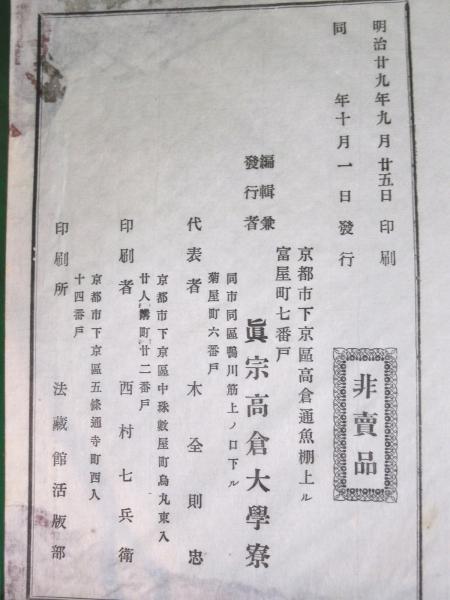 明治廿九年九月廿五日印刷
同年十月一日發行
非賣品
京都市下京區高倉通魚棚上ル
富屋町七番戸
編輯兼
發行者
眞宗高倉大學寮
同市同區鴨川筋上ノ口下ル
菊屋町六番戸
代表者 木全則忠
京都市下京區中珠數屋町烏丸東入
廿人講町廿二番戸
印刷者 西村七兵衛
京都市下京區五條通寺町西入
十四番戸
印刷所 法藏館活版部